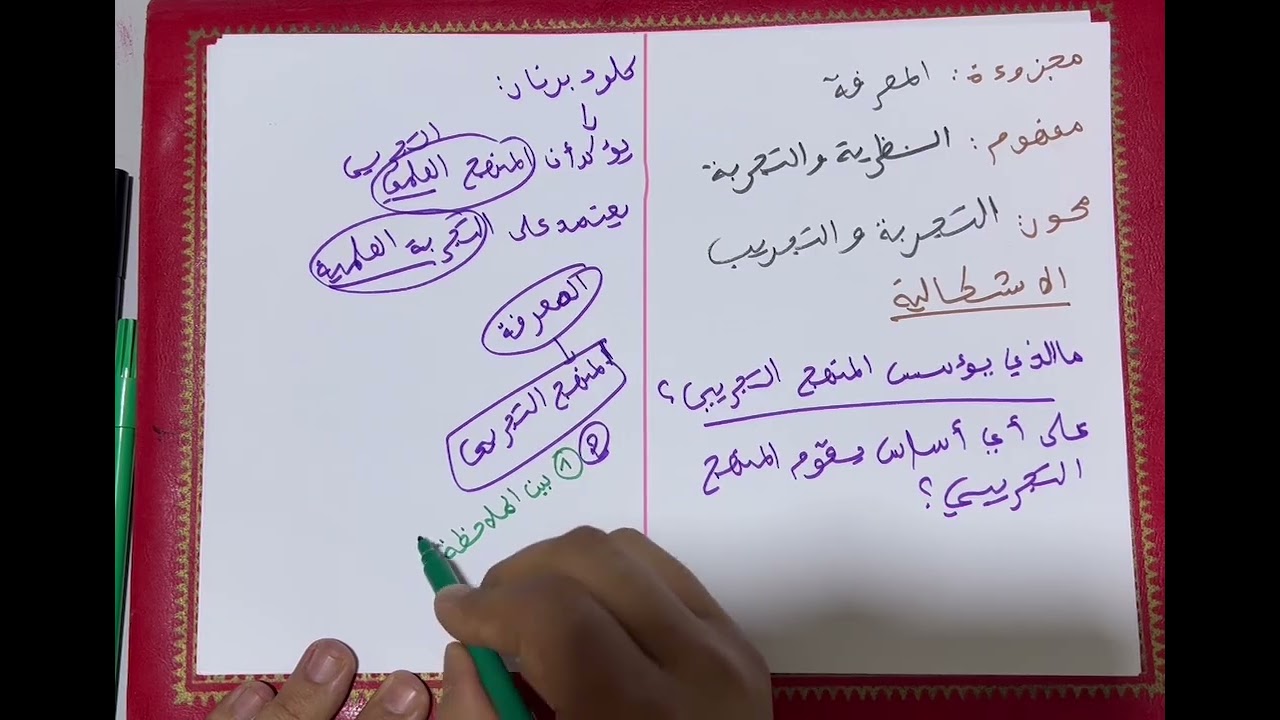 مجزوءة: المعرفة
مفهوم: النظرية والتجربة
محور: التجربة والتجريب
الاشكالية
ما الذي يؤسس المنهج التجريبي؟
على أي أساس يقوم المنهج
التجريبي؟
كلود برنار:
يؤكد أن المنهج العلمي التجريبي
يعتمد على التجربة العلمية
المعرفة
المنهج التجريبي
① بين الملاحظة